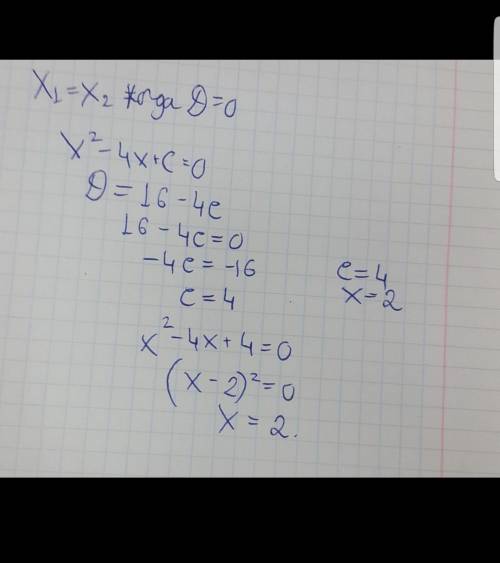 X₁=X₂ когда D=0
X²-4x+c=0
D=16-4c
16-4c=0
-4c=-16
c=4
c=4
x=2
x²-4x+4=0
(x-2)²=0
X=2.